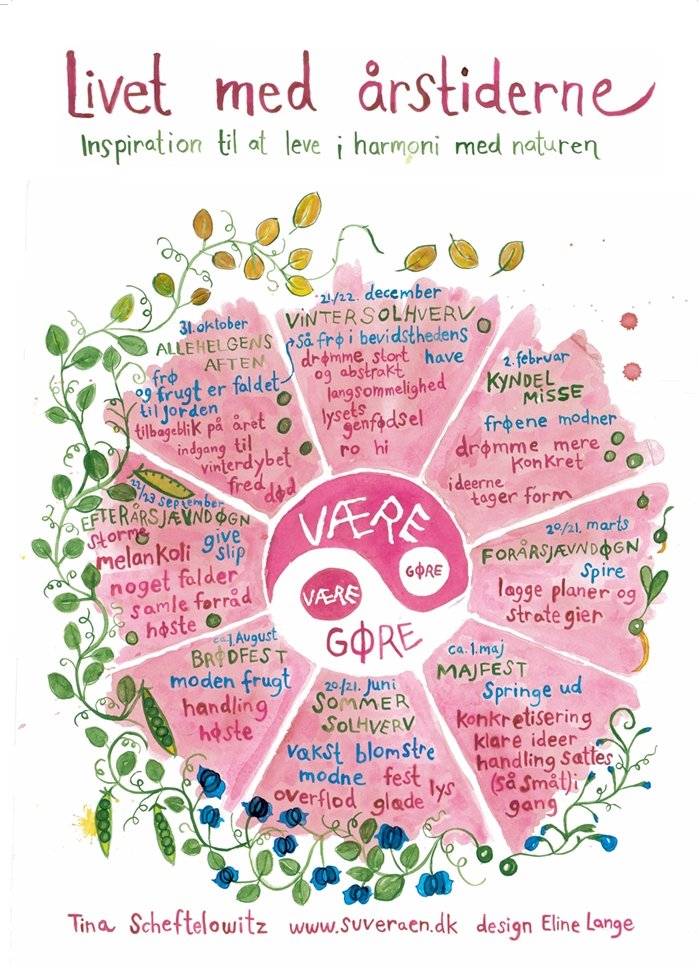 Livet med årstiderne
Inspiration til at leve i harmoni med naturen
21./22. december
VINTERSOLHVERV
Så frø i bevidsthedens have
drømme stort
og abstrakt
langsommelighed
lysets
genfødsel
ro hi
2. februar
KYNDEL
MISSE
frøene modner
drømme mere
konkret
ideerne
tager form
20/21. marts
FORÅRSJÆVNDØGN
Spire
lægge planer og
strategier
ca. 1. maj
MAJFEST
Springe ud
konkretisering
klare ideer
handling sættes
(så småt) i
gang
20/21. juni
SOMMER
SOLHVERV
vækst blomstre
modne fest lys
overflod glæde
ca. 1. August
BRØDFEST
moden frugt
handling
høste
22/23 september
EFTERÅRSJÆVNDØGN
storme give
melankoli slip
noget falder
samle forråd
høste
31. oktober
ALLEHELGENS
AFTEN
frø
og frugt er faldet
til jorden
tilbageblik på året
indgang til
vinterdybet
fred død
VÆRE
GØRE
VÆRE
GØRE
Tina Scheftelowitz www.suveraen.dk design Eline Lange